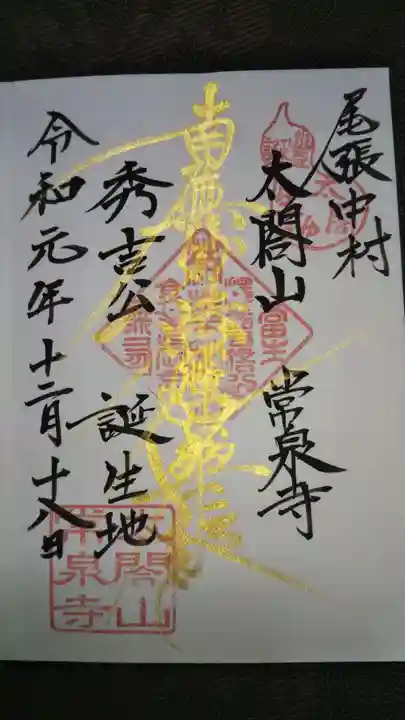 尾張中村
太閤山 常泉寺
南無妙法蓮華経
秀吉公 誕生地
令和元年十二月十八日
太閤山
常泉寺